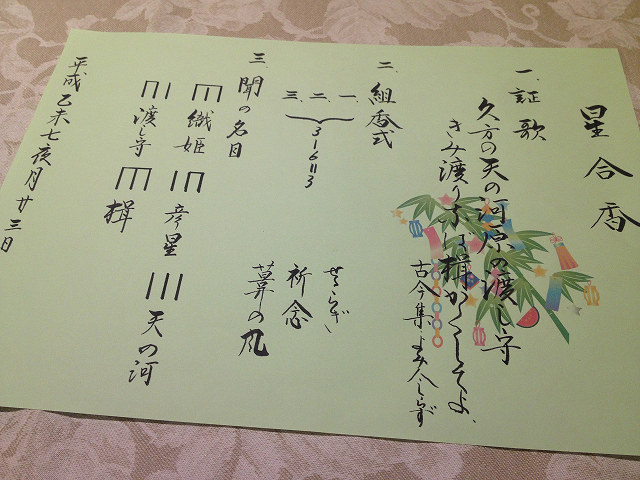 星合香
一、証歌
久方の天の河原の渡し守
きみ渡りなば楫かくしてよ、
古今集・よみ人しらず
二、組香式
一、
二、
三、
3-6=3
せせらぎ
祈念
葦の風
三、聞の名目
織姫
彦星
天の河
渡し守
楫
平成乙未七夜月廿三日